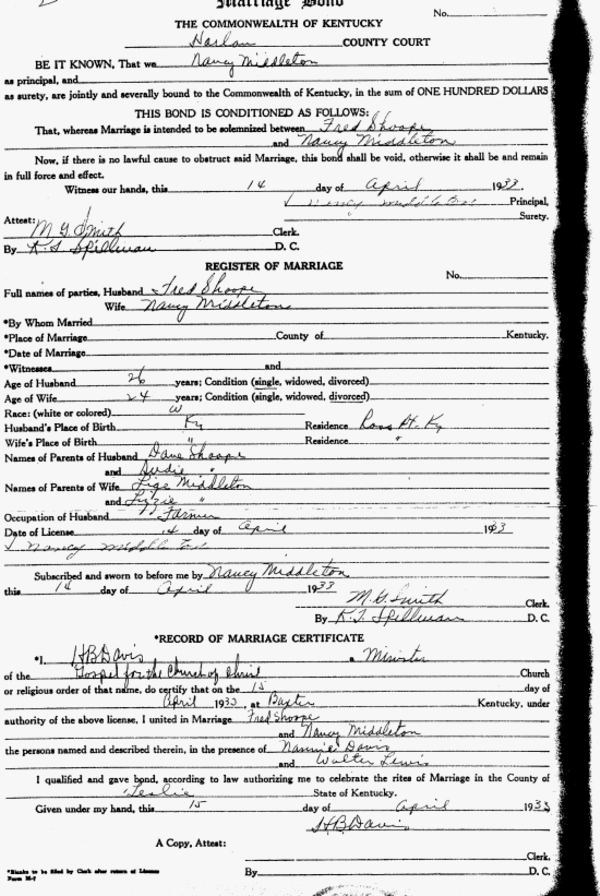 Marriage Bond
No.
THE COMMONWEALTH OF KENTUCKY
Harlan COUNTY COURT
BE IT KNOWN, That we Nancy Middleton
as principal, and
as surety, are jointly and severally bound to the Commonwealth of Kentucky, in the sum of ONE HUNDRED DOLLARS
THIS BOND IS CONDITIONED AS FOLLOWS:
That, whereas Marriage is intended to be solemnized between Fred Shoope
and Nancy Middleton
Now, if there is no lawful cause to obstruct said Marriage, this bond shall be void, otherwise it shall be and remain
in full force and effect.
Witness our hands, this 14 day of April 1933
Nancy Middleton Principal,
Surety.
Attest:
M G Smith Clerk.
By K. T. Spillman D. C.
REGISTER OF MARRIAGE
No.
Full names of parties, Husband Fred Shoope
Wife Nancy Middleton
*By Whom Married
*Place of Marriage County of Kentucky.
*Date of Marriage
*Witnesses and
Age of Husband 26 years; Condition (single, widowed, divorced)
Age of Wife 24 years; Condition (single, widowed, divorced)
Race: (white or colored) W
Husband's Place of Birth Ky Residence Ross Pt. Ky
Wife's Place of Birth " Residence "
Names of Parents of Husband Dave Shoope
and "
Names of Parents of Wife Lige Middleton
and Lizzie "
Occupation of Husband Farmer
Date of License 14 day of April 1933
Nancy Middleton
Subscribed and sworn to before me by Nancy Middleton
this 14 day of April 1933
M. G. Smith Clerk.
By K. T. Spillman D. C.
*RECORD OF MARRIAGE CERTIFICATE
*I, H B Davis a Minister
of the Gospel for the Church of Christ Church
or religious order of that name, do certify that on the 15 day of
April 1933, at Baxter Kentucky, under
authority of the above license, I united in Marriage Fred Shoope
and Nancy Middleton
the persons named and described therein, in the presence of Nannie Davis
and Walter Lewis
I qualified and gave bond, according to law authorizing me to celebrate the rites of Marriage in the County of
Leslie State of Kentucky.
Given under my hand, this 15 day of April 1933
H B Davis
A Copy, Attest:
Clerk.
*Blanks to be filed by Clerk after return of License
Form M-7
By D. C.